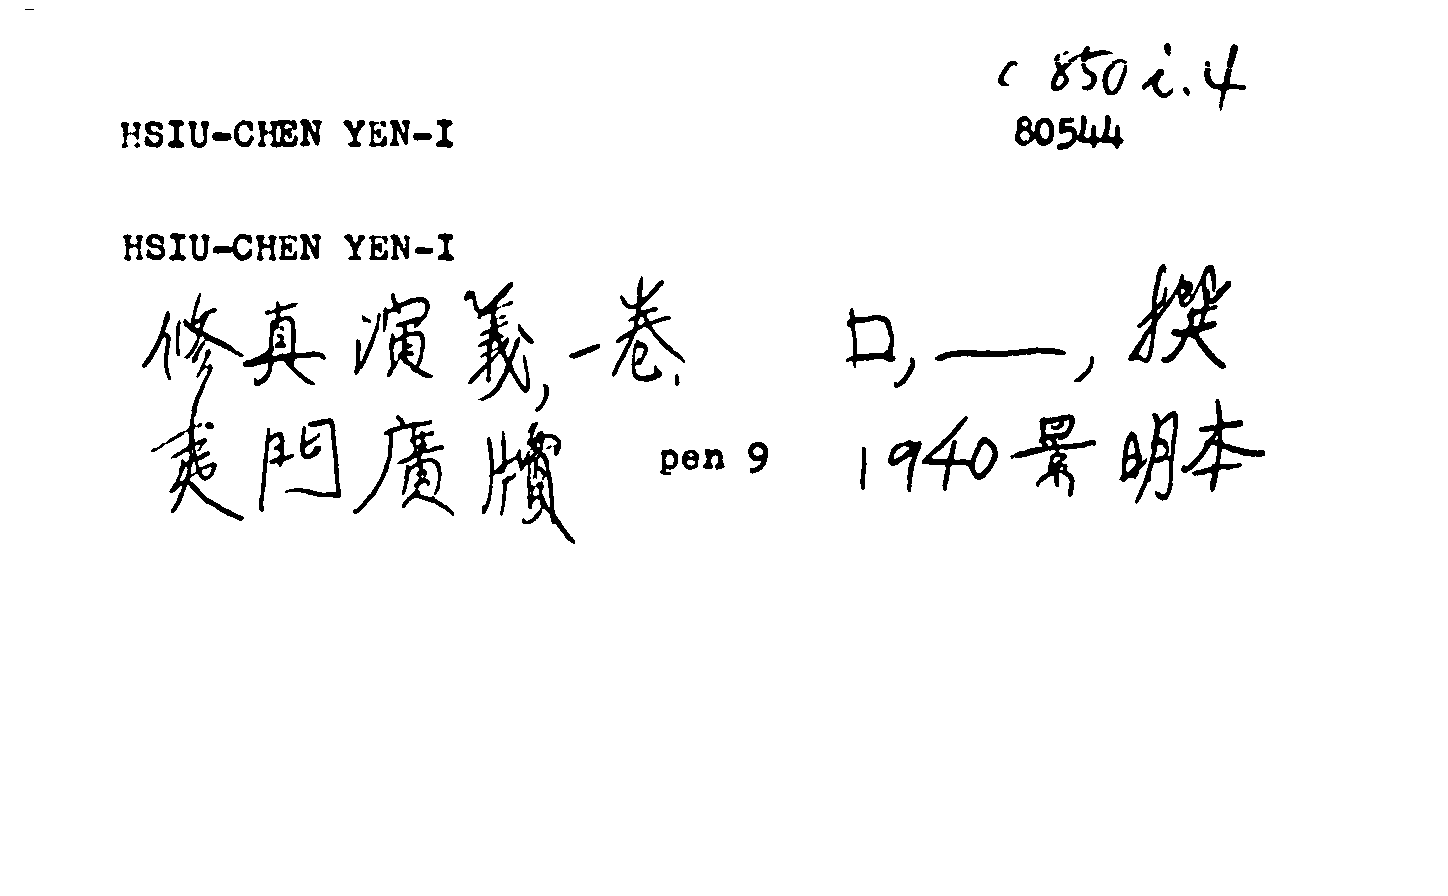 c 850 i.4
HSIU-CHEN YEN-I 80544
HSIU-CHEN YEN-I
修真演義,一卷. 口,——,撰
夷門廣牘 pen 9 1940景明本